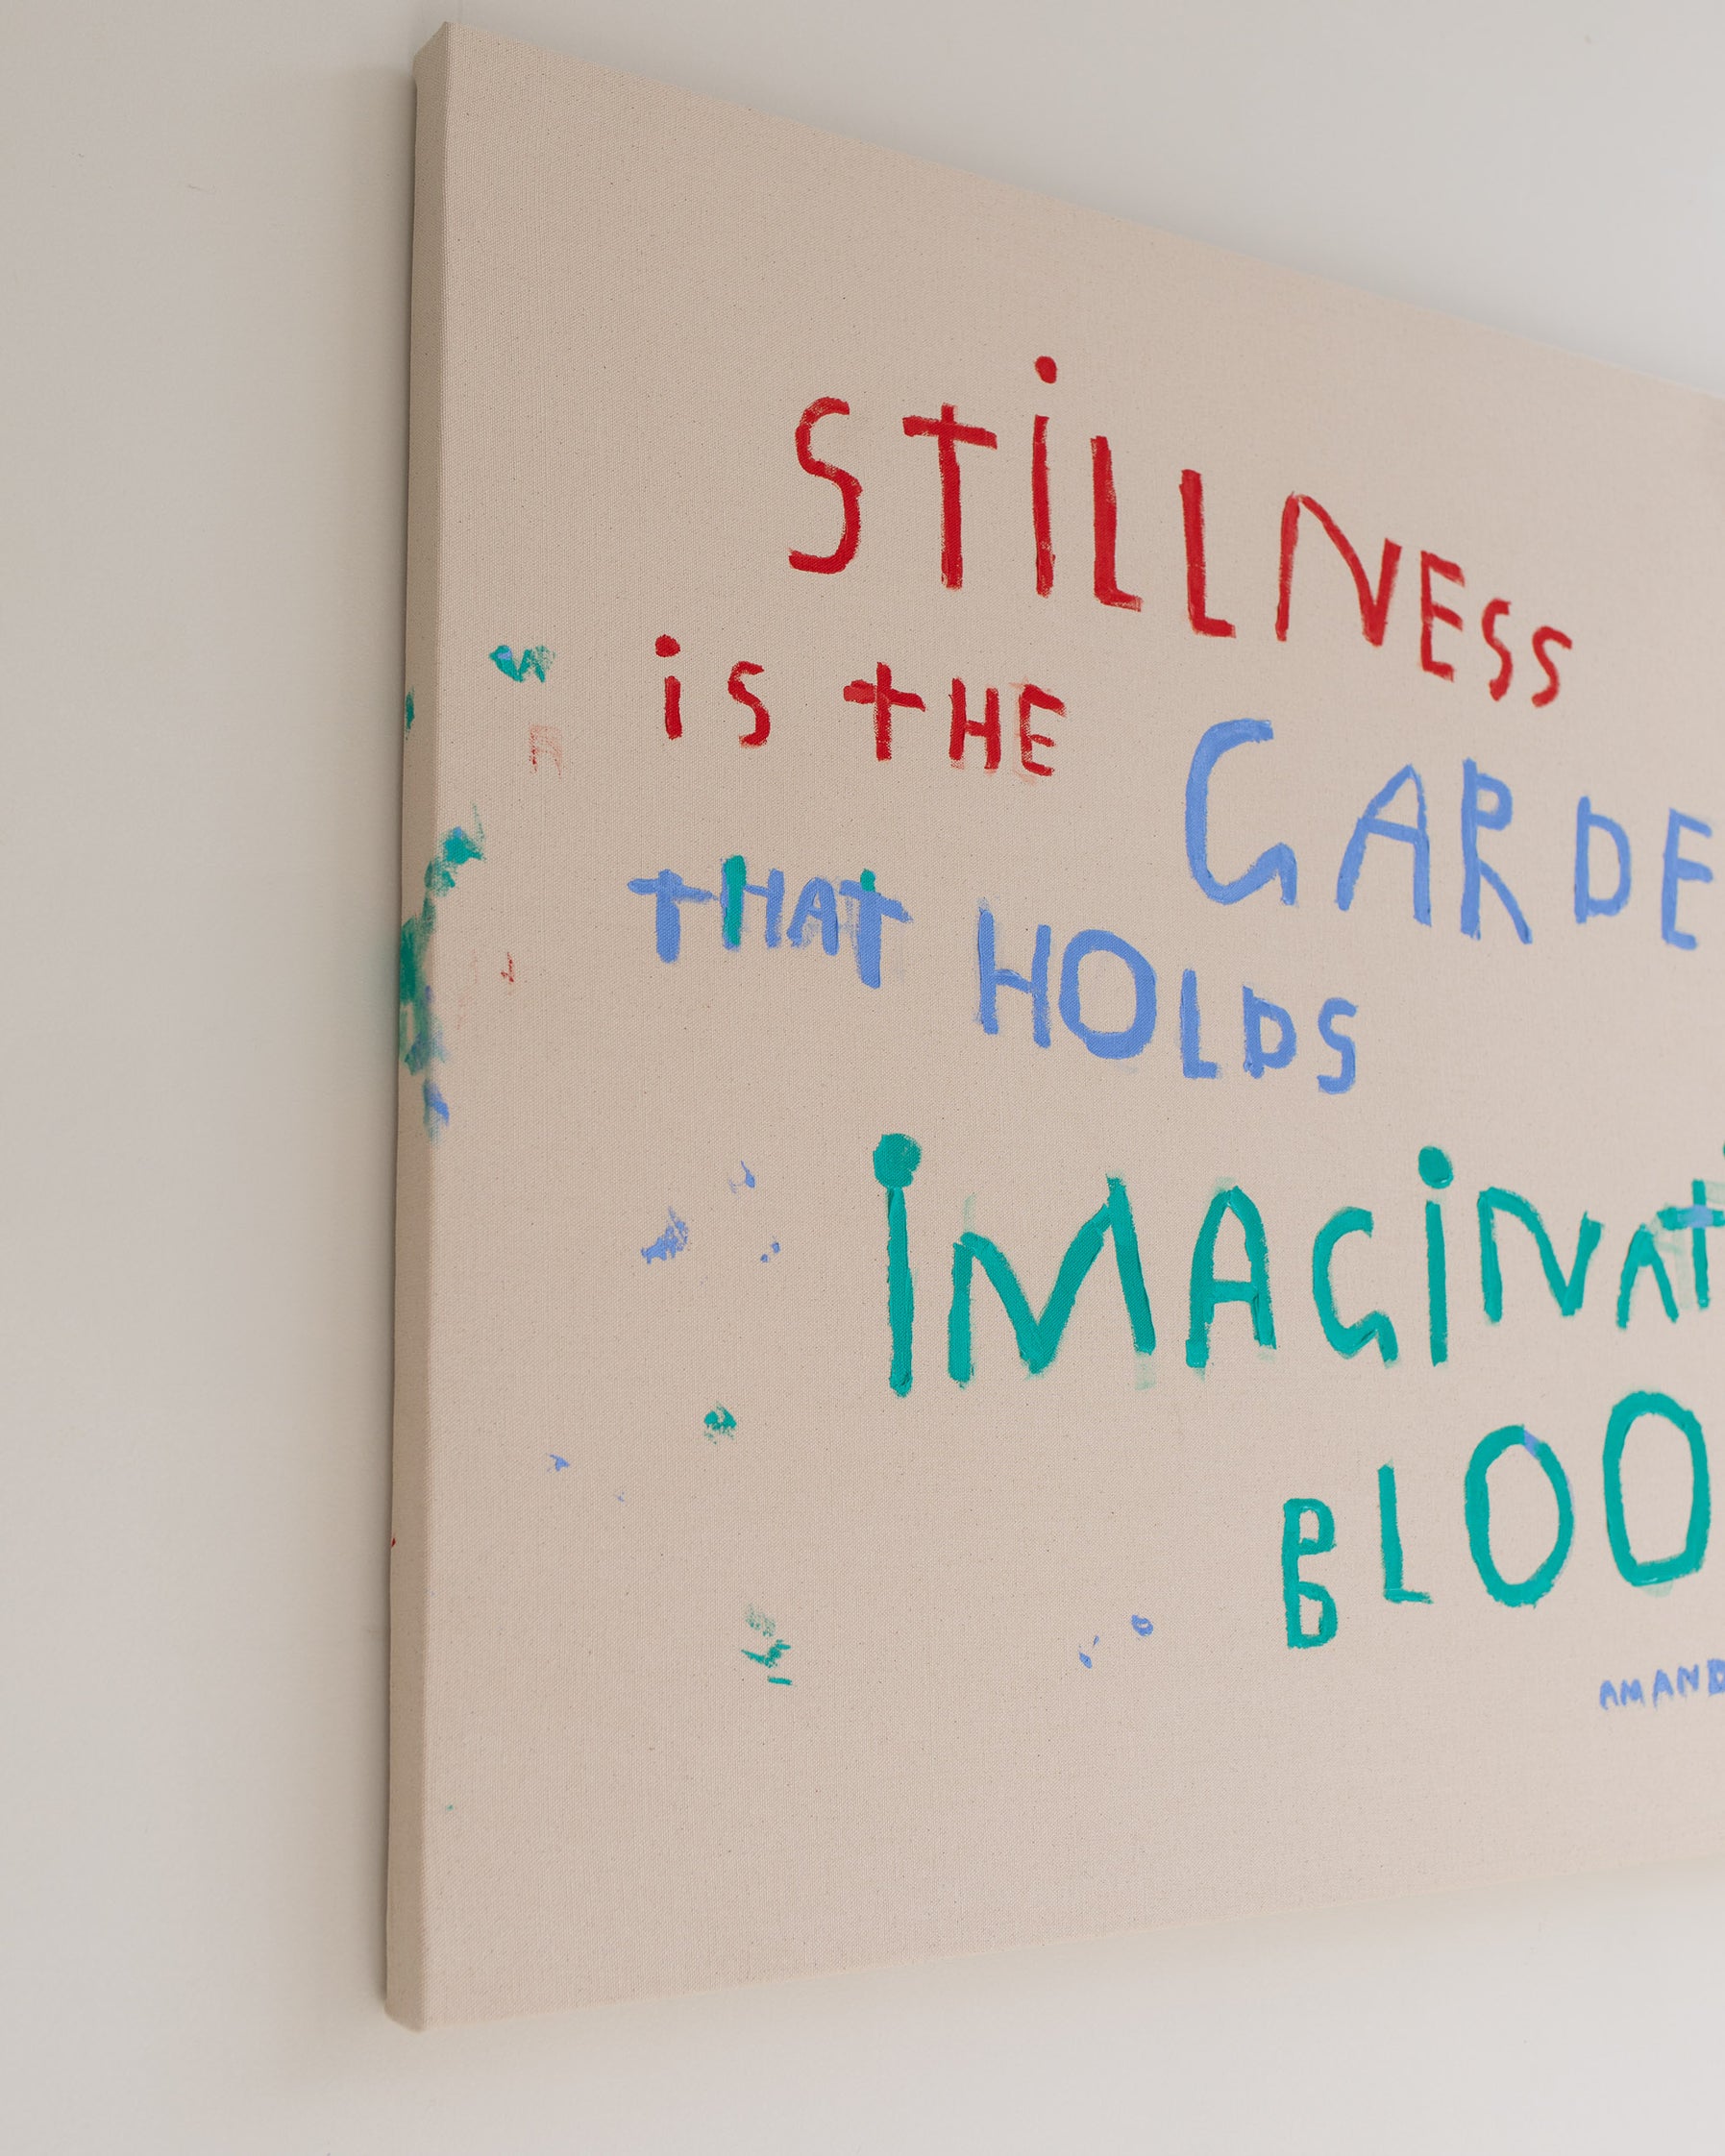 STiLLNESS
iS tHE GARDE
tHAt HOLDS
iMAGiNAt
BLOO
AMAND